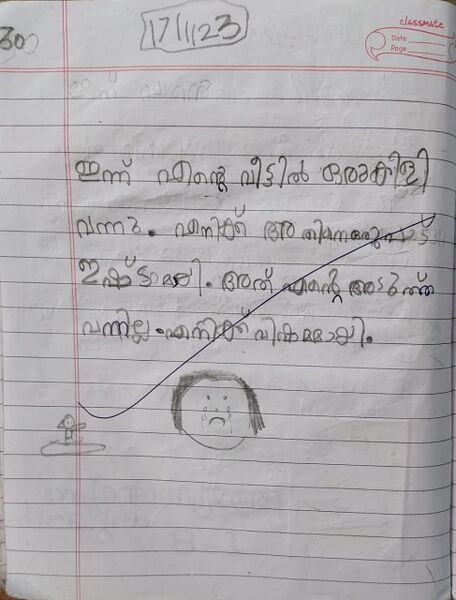 classmate
Date
Page
30
17/1123
ഇന്ന് എന്റെ
ഇന്ന് എന്റെ വീട്ടിൽ ഒരു കിളി
വന്നു. എനിക്ക് അതിനെ ഒരുപാട്
ഇഷ്ടമായി. അത് എന്റെ അടുത്ത്
വന്നില്ല. എനിക്ക് വിഷമമായി.